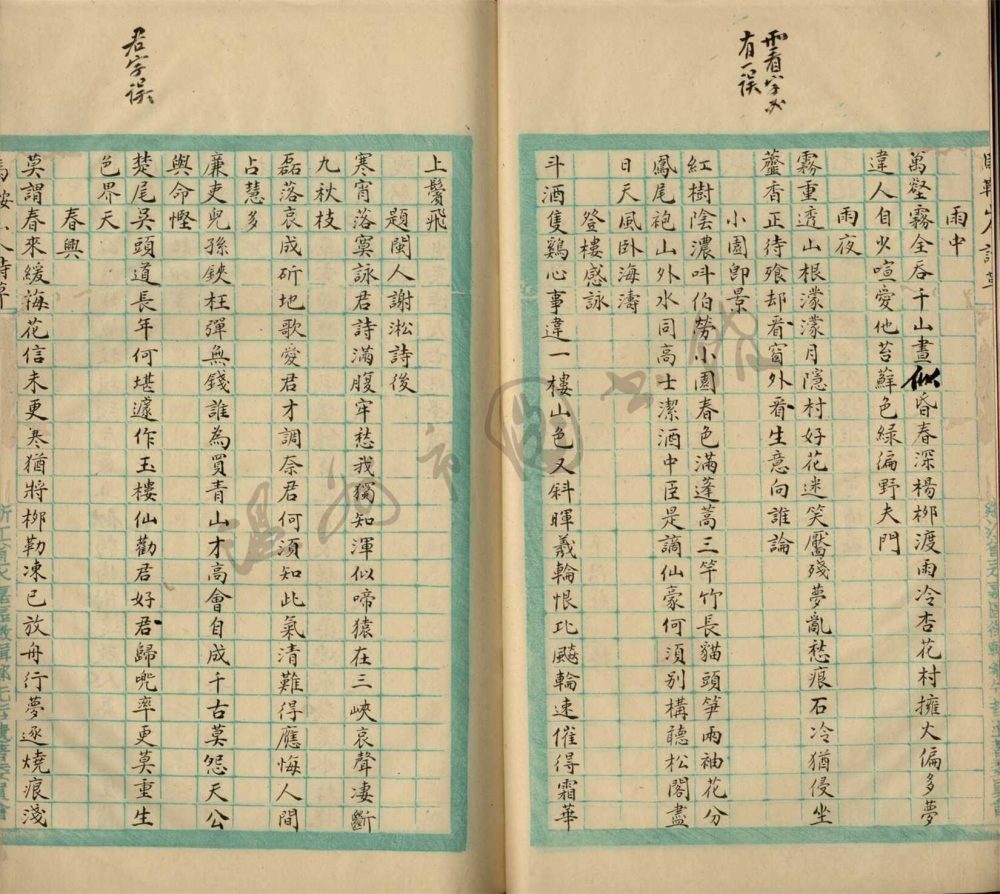 兩看字必
有一誤
雨中
萬壑霧全唇千山晝似昏春深楊柳渡雨冷杏花村擁火偏多夢
違人自少喧愛他苔蘚色綠徧野夫門
雨夜
霧重透山根濛濛月隱村好花迷笑靨殘夢亂愁痕石冷猶侵坐
虀香正待飧却看窗外看生意向誰論
小園卽景
紅樹陰濃呌伯勞小園春色滿蓬蒿三竿竹長貓頭笋兩袖花分
鳳尾袍山外水同高士潔酒中臣是謫仙豪何須別構聽松閣盡
日天風卧海濤
登樓感詠
斗酒隻鷄心事違一樓山色又斜暉羲輪恨比颷輪速催得霜華
君字誤
上鬢飛
題閩人謝淞詩後
寒宵落寞詠君詩滿腹牢愁我獨知渾似啼猿在三峽哀聲凄斷
九秋枝
磊落哀成斫地歌愛君才調奈君何須知此氣清難得應悔人間
占慧多
廉吏兒孫鋏枉彈無錢誰為買青山才高會自成千古莫怨天公
與命慳
楚尾吳頭道長年何堪遽作玉樓仙勸君好君歸兜率更莫重生
色界天
春興
莫謂春來緩梅花信未更寒猶將柳勒凍已放舟行夢逐燒痕淺
温州市圖書館